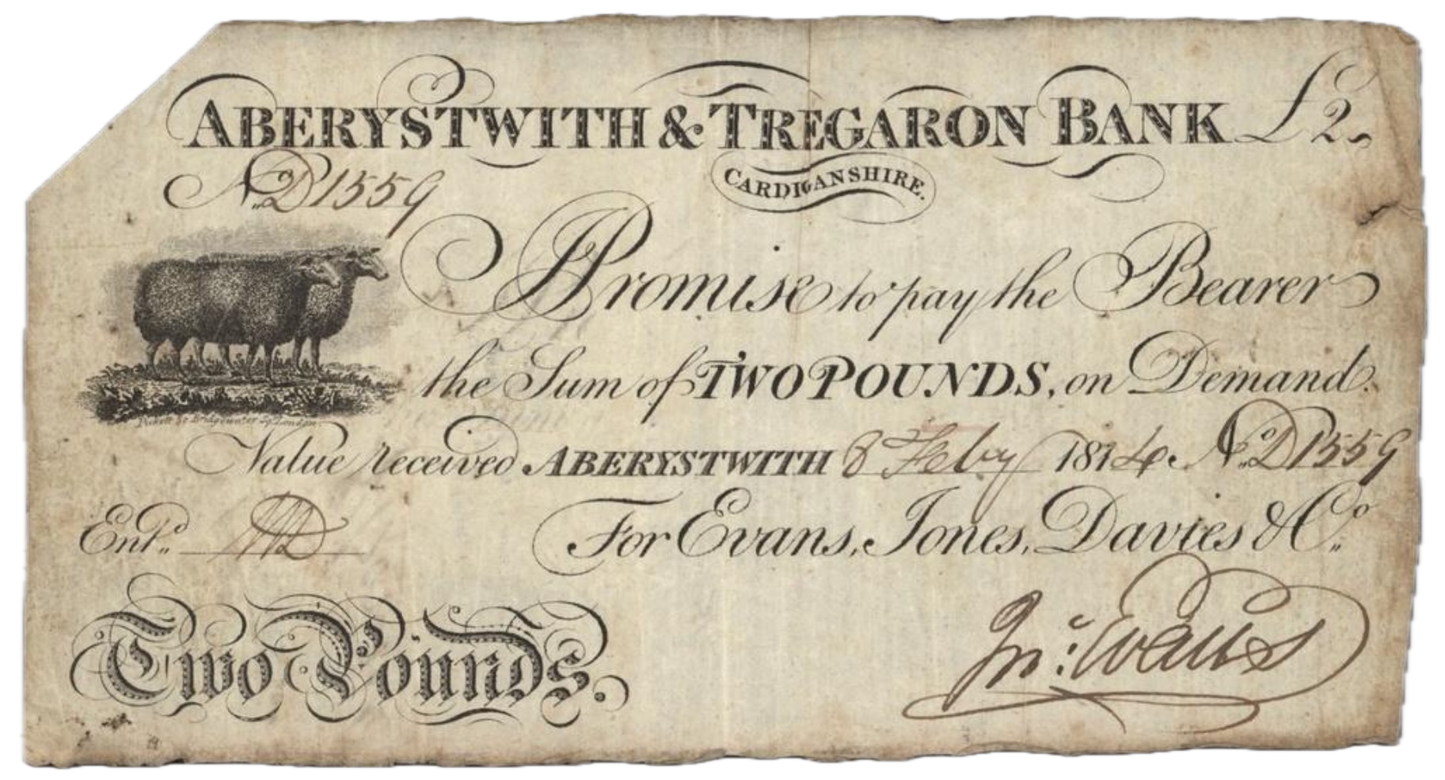 ABERYSTWITH & TREGARON BANK £2
CARDIGANSHIRE.
No. D1559
I Promise to pay the Bearer
the Sum of TWO POUNDS, on Demand.
Value received ABERYSTWITH 8 Feby 1814 No. D1559
Entd.
For Evans, Jones, Davies & Co.
Two Pounds.
Jno: Evans